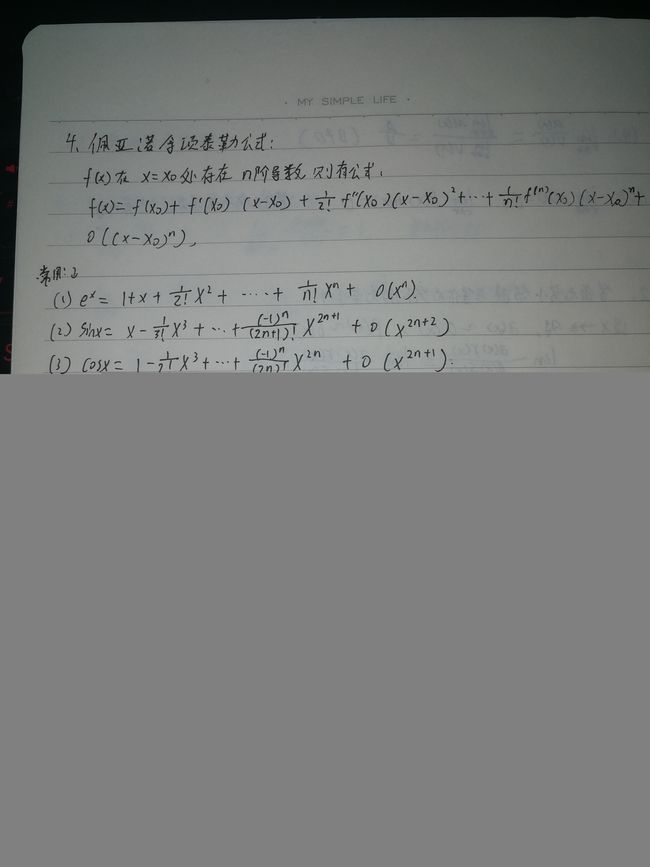 · MY SIMPLE LIFE ·
4、佩亚诺余项泰勒公式:
f(x)在 x=x0 处存在 n阶导数,则有公式:
f(x)= f(x0)+ f'(x0) (x-x0) + 1/2! f''(x0)(x-x0)^2+…+ 1/n! f^(n)(x0)(x-x0)^n+
o((x-x0)^n),
常用:
(1) e^x = 1+x+ 1/2! x^2+ ……+ 1/n! x^n + o(x^n).
(2) sinx= x- 1/3! x^3 +…+ (-1)^n/(2n+1)! x^2n+1 + o(x^2n+2)
(3) cosx= 1- 1/2! x^3+…+ (-1)^n/(2n)! x^2n + o(x^2n+1).